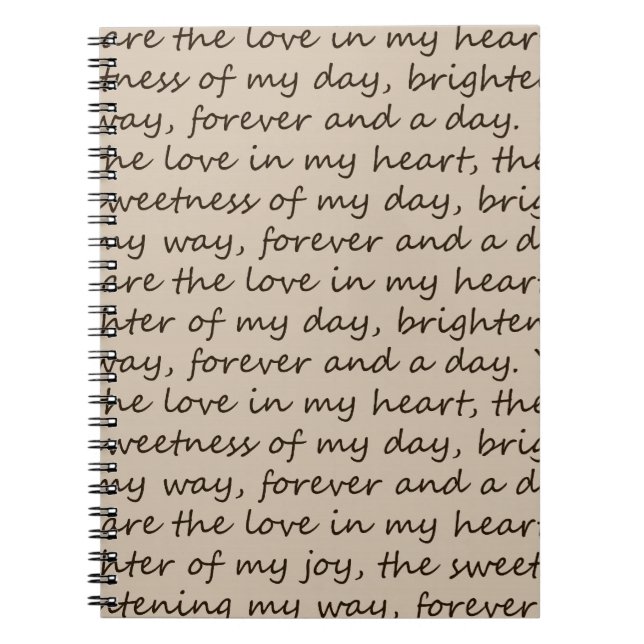 are the love in my hear
tness of my day, brighte
way, forever and a day.
he love in my heart, the
weetness of my day, brig
my way, forever and a d
are the love in my hear
hter of my day, brighten
way, forever and a day. Y
he love in my heart, the
weetness of my day, brig
my way, forever and a d
are the love in my hear
hter of my joy, the sweet
ntening my way, forever